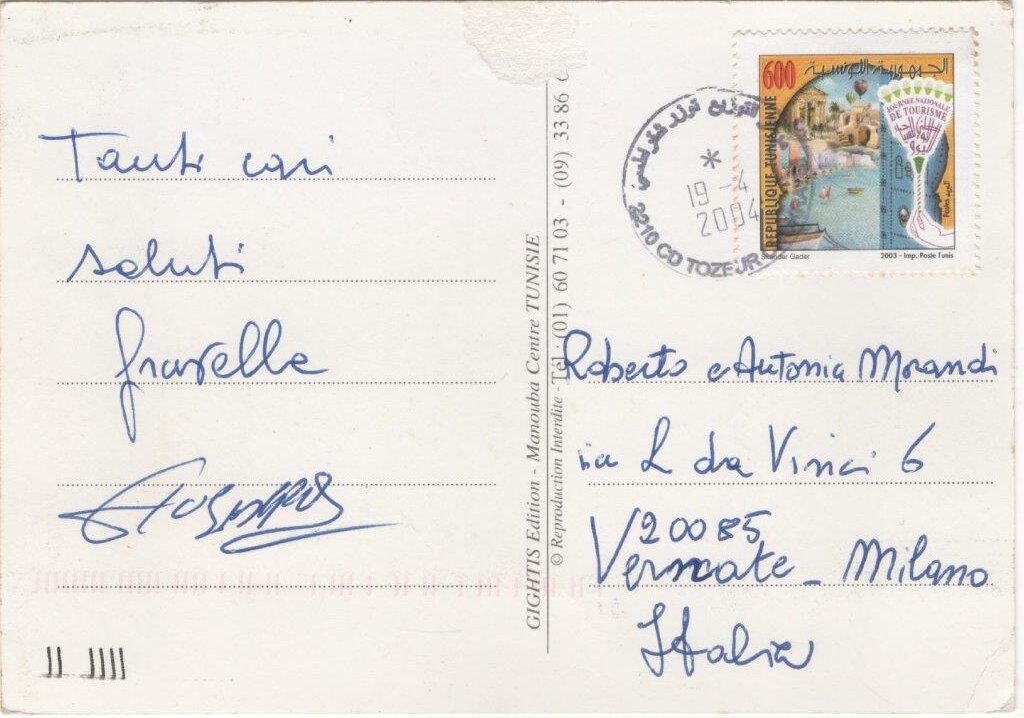 Tanti cari
saluti
Graziella
GIGHTIS Edition - Manouba Centre TUNISIE
© Reproduction Interdite - Tél : (01) 60 71 03 - (09) 33 86
600
الجمهورية التونسية
REPUBLIQUE TUNISIENNE
JOURNEE NATIONALE
DE TOURISME
البريد
Postes
Skander Gader
2003 - Imp. Poste Tunis
19 - 4
2004
2210 CD TOZEUR
Roberto e Antonia Morandi
via L da Vinci 6
20085
Vernate - Milano
Italia